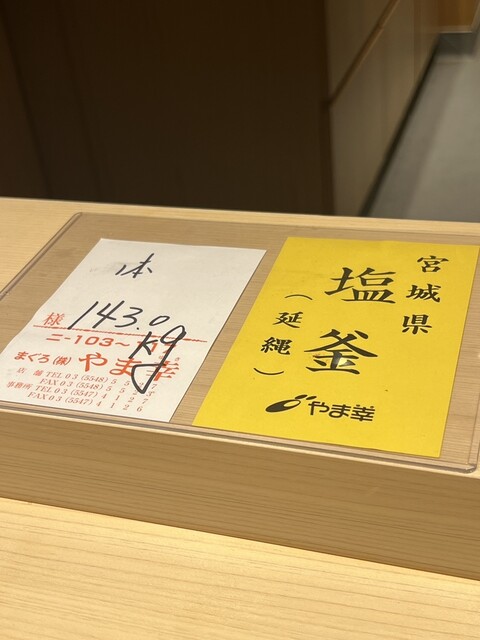 本
様 143.0kg
ニ-103~
まぐろ(株) やま幸
店舗 TEL 03 (5548) 5
FAX 03 (5548) 5
事務所 TEL 03 (5547) 4126
FAX 03 (5547) 4126
宮城県
塩釜
(延縄)
やま幸